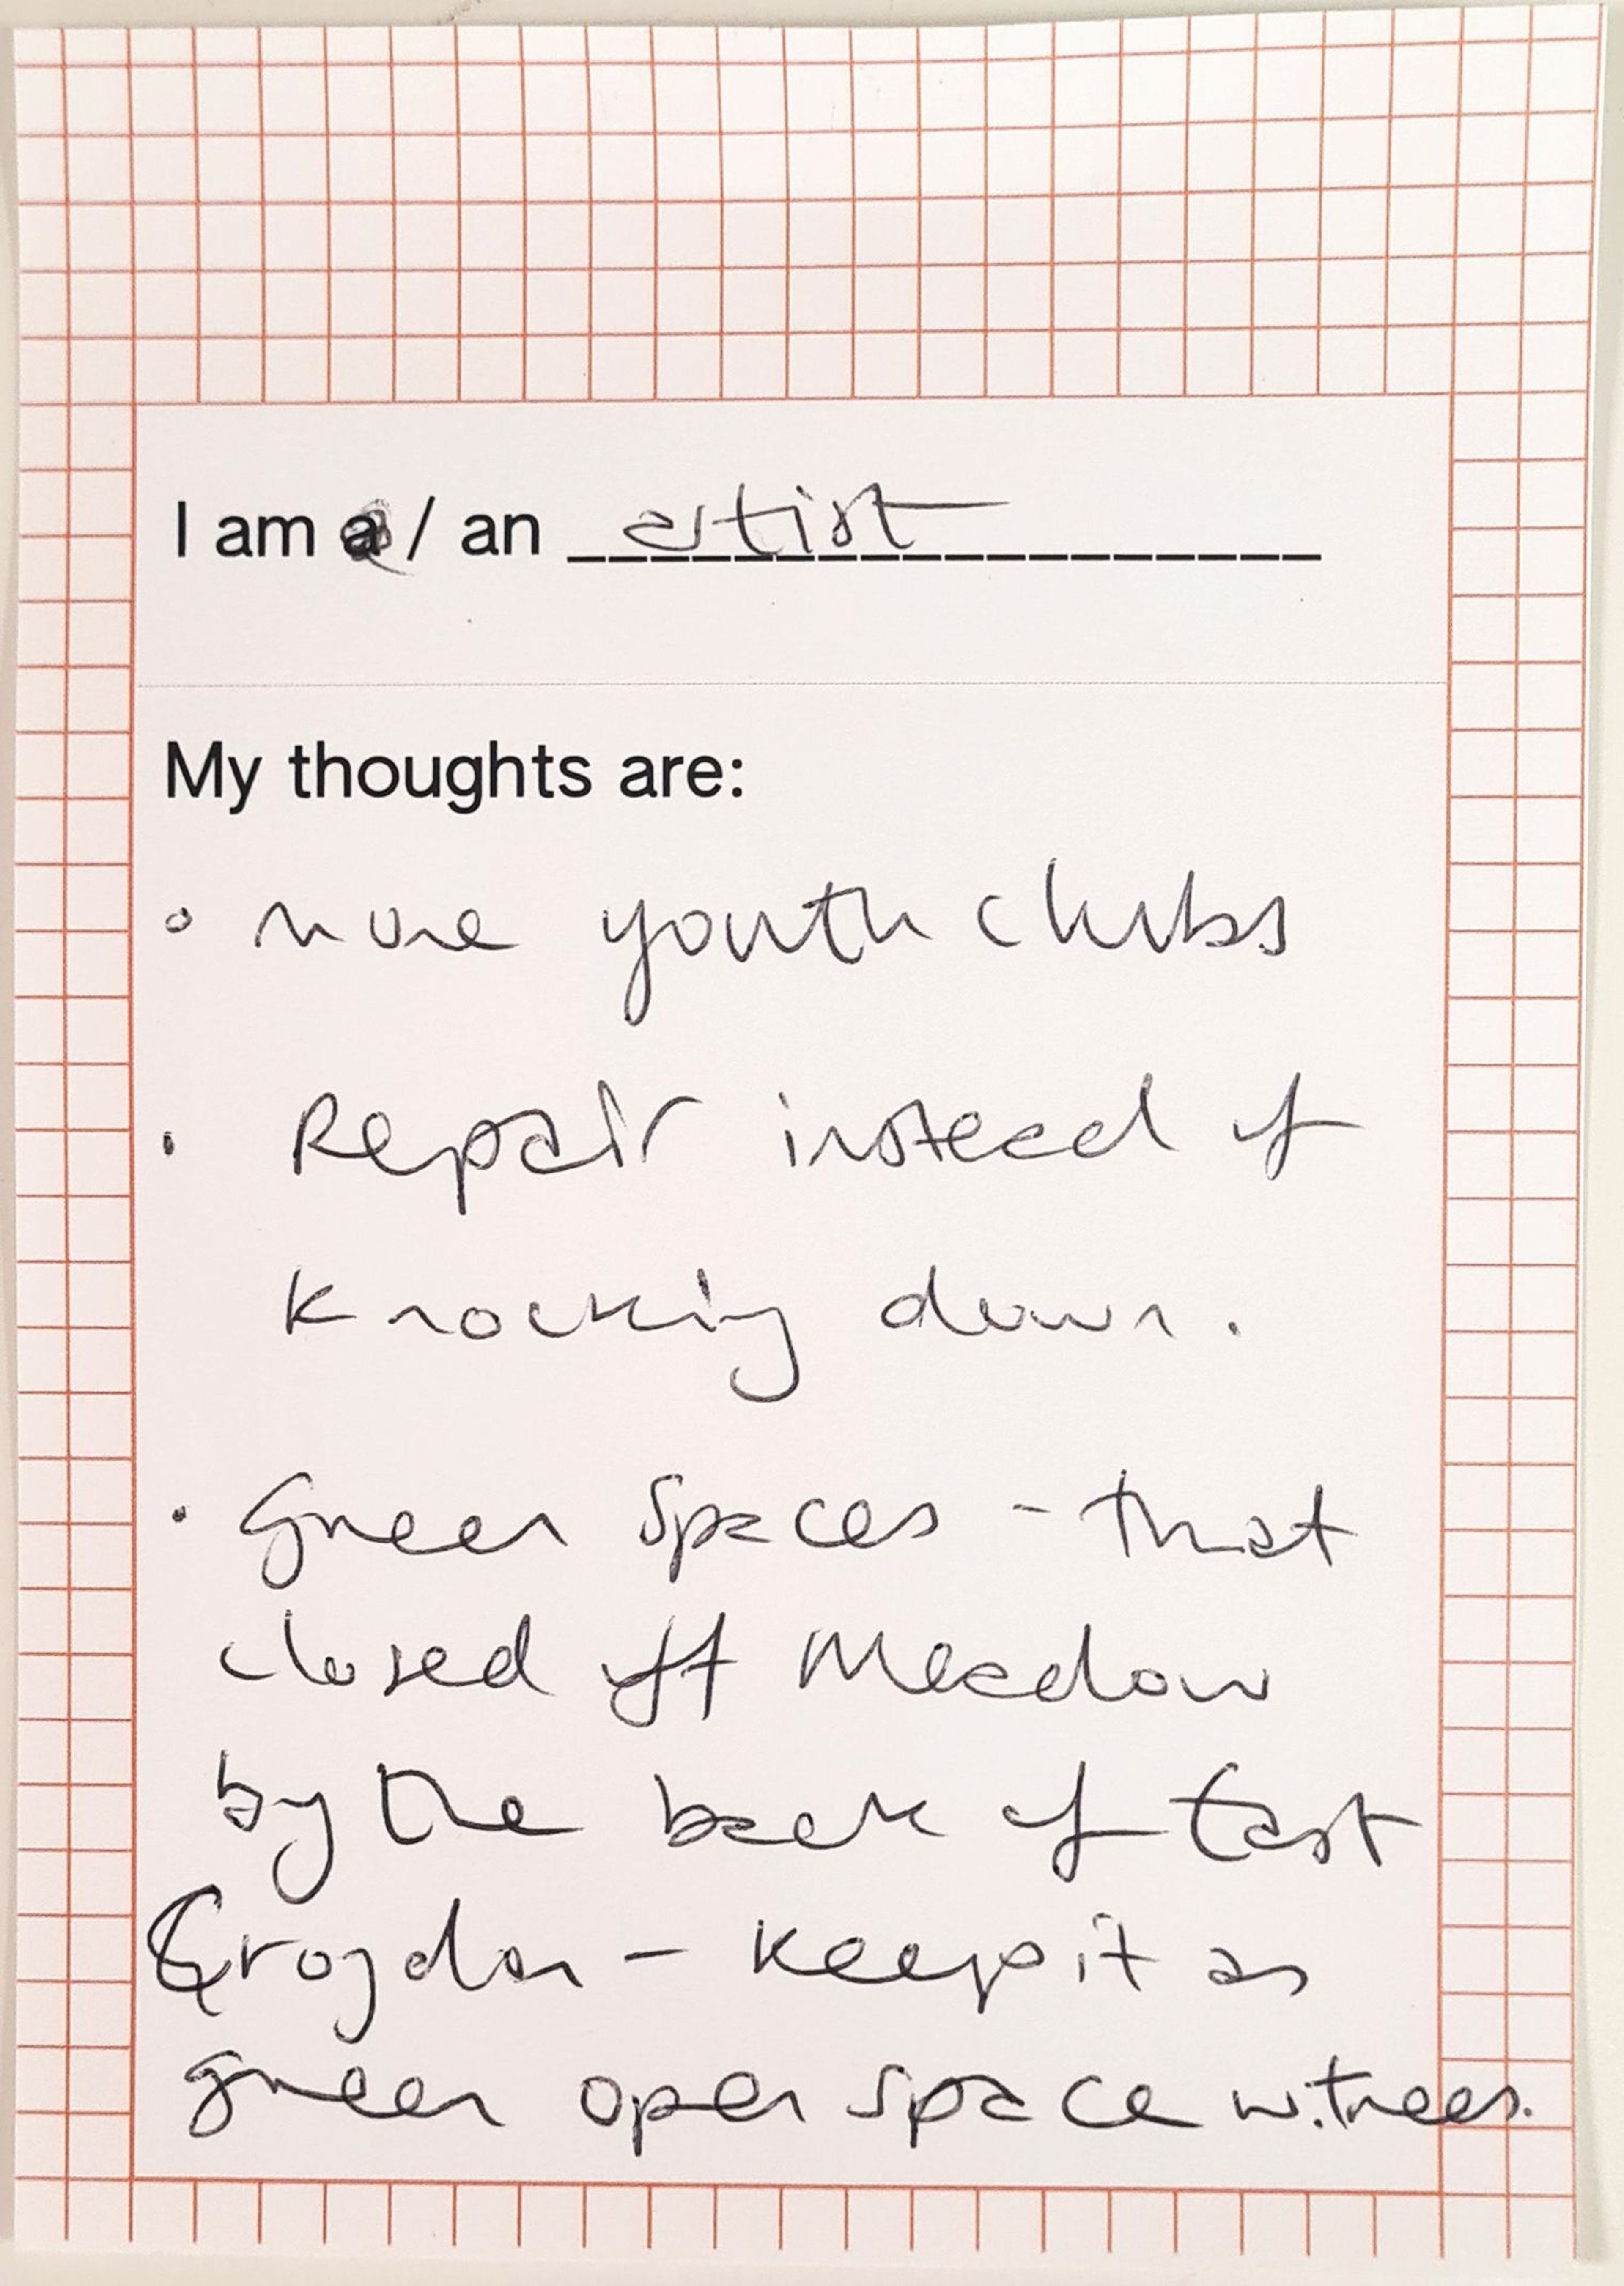 I am a / an artist
My thoughts are:
• more youth clubs
• Repair instead of
knocking down.
• Green spaces - that
closed off Meadow
by the back of East
Croydon - keep it as
green open space w.trees.